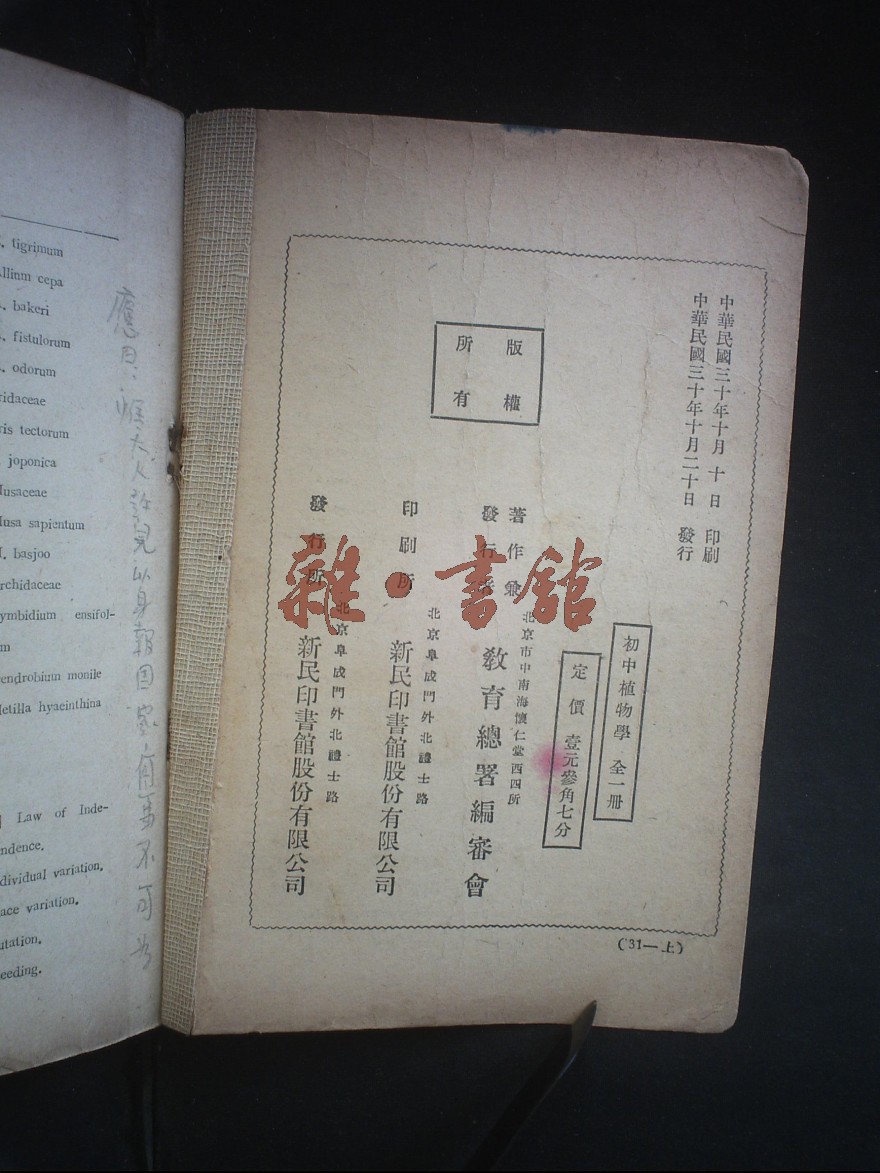 . tigrimum
Allium cepa
. bakeri
. fistulorum
. odorum
ridaceae
ris tectorum
. joponica
Musaceae
Musa sapientum
M. basjoo
Orchidaceae
Cymbidium ensifol-
m
Dendrobium monile
Bletilla hyaeinthina
Law of Inde-
ndence.
dividual variation.
ace variation.
utation.
eeding.
大人許兒以身報国家有
不可
中華民國三十年十月 十 日 印刷
中華民國三十年十月二十日 發行
初中植物學 全一冊
定價 壹元參角七分
版權
所有
著作兼
發行者
北京市中南海懷仁堂西四所
教育總署編審會
印刷所
北京阜成門外北禮士路
新民印書館股份有限公司
發行所
北京阜成門外北禮士路
新民印書館股份有限公司
('31—上)
雜·書館